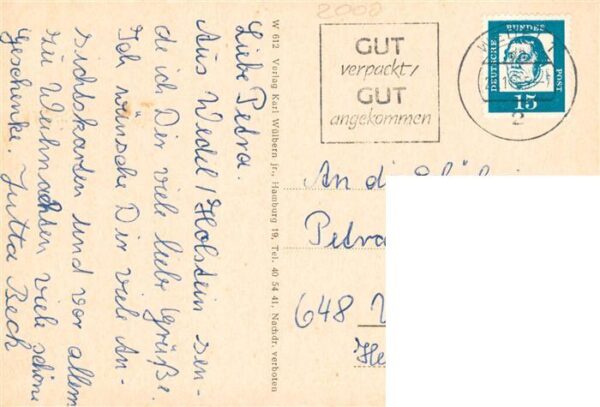 Liebe Petra.
Aus Wedel/Holstein sen-
de ich Dir viele liebe Grüße.
Ich wünsche Dir viele An-
sichtskarten und vor allem
zu Weihnachten viele schöne
Geschenke. Jutta Bech
W 612 Verlag Karl Wülbern jr., Hamburg 19, Tel. 40 54 41, Nachdr. verboten
2000
GUT
verpackt/
GUT
angekommen
DEUTSCHE BUNDES POST
15
2
An die
Petra
648